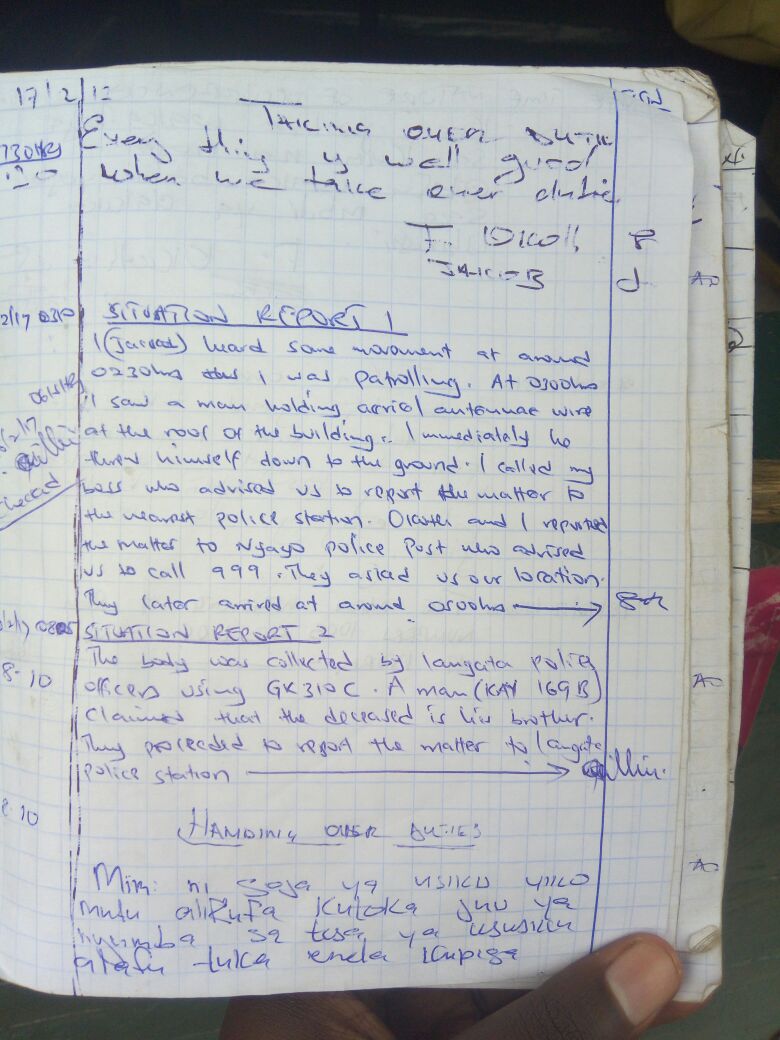 17/2/17
Taking over dutie
1730HRS
Every thing is well good
when we take over dutie.
J. Okoth
Jacob
2/17 0310
SITUATION REPORT 1
I (Jacob) heard some movement at around
0230hrs I was patrolling. At 0300hrs
0615HRS
I saw a man holding aerial antennae wire
at the roof of the building. Immediately he
threw himself down to the ground. I called my
boss who advised us to report the matter to
Checked
the nearest police station. Okoth and I reported
the matter to Nyayo police post who advised
us to call 999. They asked us our location.
They later arrived at around 0500hrs
SITUATION REPORT 2
The body was collected by langata police
8.10
officers using GK 310 C. A man (KAY 169B)
claimed that the deceased is his brother.
They proceeded to report the matter to langata
police station
8.10
HANDING OVER DUTIES
Mimi ni soja ya usiku
mutu alikufa kutoka juu ya
nyumba sa tisa ya ususiku
alafu tuka enda kupiga